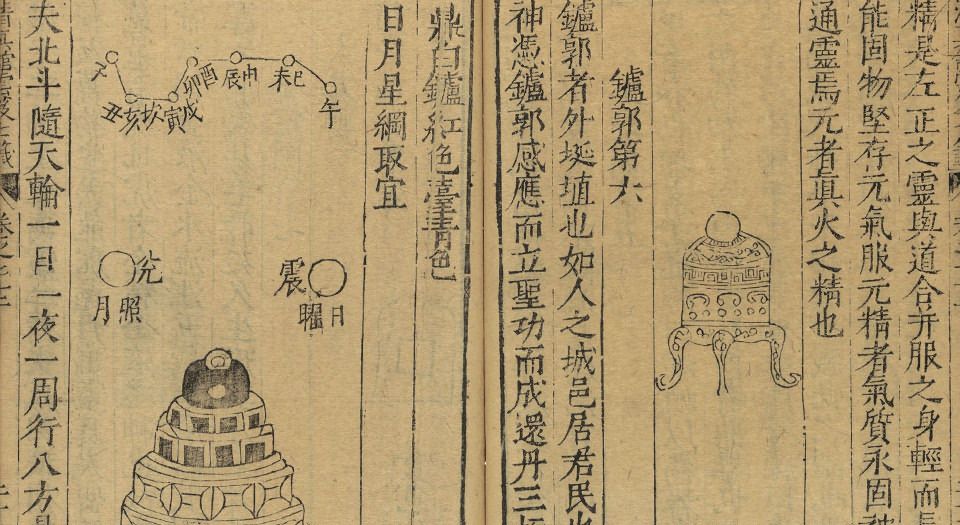 精是左正之靈與道合并服之身輕而
能固物堅存元氣服元精者氣質永固
通靈焉元者眞火之精也
鑪郭第六
鑪郭者外埏埴也如人之城邑居君民
神憑鑪郭感應而立聖功而成還丹三
鼎白鑪紅色臺靑色
日月星綱取宜
午
巳未
申辰
酉卯
戌寅坎亥丑
震
日曜
兊
照月
夫北斗隨天輪一日一夜一周行八方